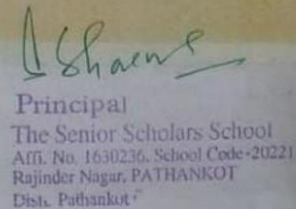 Principal
The Senior Scholars School
Affi. No. 1630236. School Code-20221
Rajinder Nagar, PATHANKOT
Distt. Pathankot